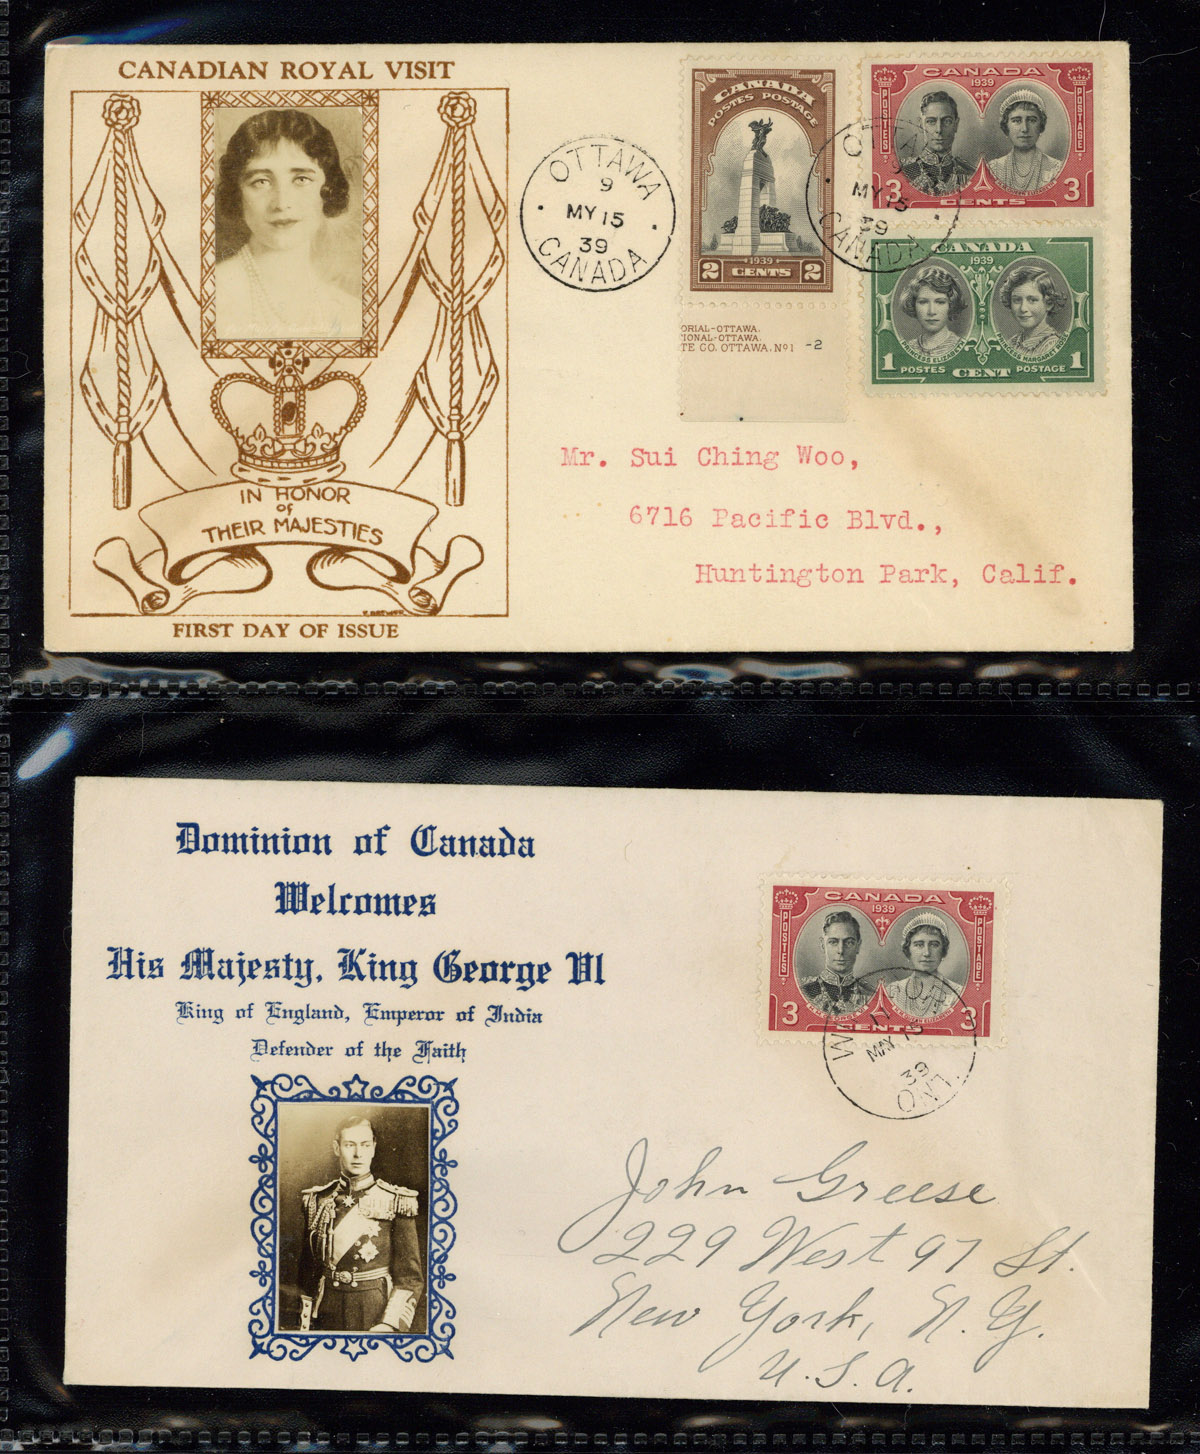 CANADIAN ROYAL VISIT
IN HONOR
OF
THEIR MAJESTIES
FIRST DAY OF ISSUE
OTTAWA
9
MY 15
39
CANADA
CANADA
POSTES POSTAGE
1939
2 CENTS 2
ORIAL-OTTAWA.
IONAL-OTTAWA.
TE CO. OTTAWA. Nº1 -2
CANADA
1939
POSTES
POSTAGE
3 CENTS 3
OTTAWA
9
MY 15
39
CANADA
CANADA
1939
PRINCESS ELIZABETH
PRINCESS MARGARET ROSE
1 POSTES CENT POSTAGE 1
Mr. Sui Ching Woo,
6716 Pacific Blvd.,
Huntington Park, Calif.
Dominion of Canada
Welcomes
His Majesty, King George VI
King of England, Emperor of India
Defender of the Faith
CANADA
1939
POSTES
POSTAGE
3 CENTS 3
MAY
39
ONT.
John Greese
229 West 97 St.
New York, N.Y.
U.S.A.